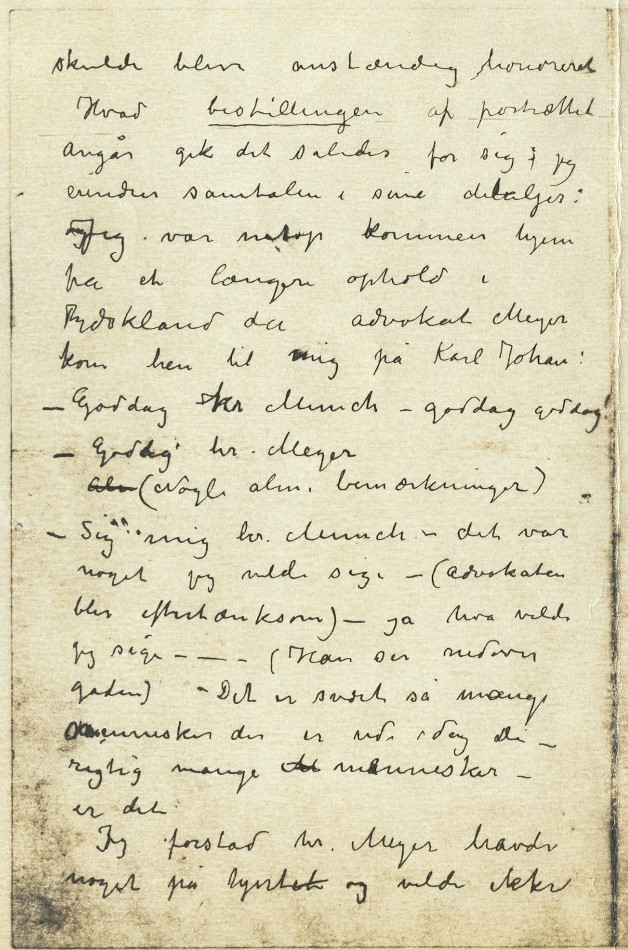 skulde blive anstændig honoreret
Hvad bestillingen af portrættet
angår gik det således for sig; jeg
erindrer samtalen i sine detaljer:
Jeg var netop kommen hjem
fra et længere ophold i
Tydskland da advokat Meyer
kom hen til mig på Karl Johan:
– Goddag hr Munch – goddag goddag!
– Goddag hr. Meyer
alm (Nogle alm. bemærkninger)
– Sig mig hr. Munch – det var
noget jeg vilde sige – (advokaten
blir eftertænksom) – ja hva vilde
jeg sige – – – (Han ser nedover
gaden) – Det er svært så mange
mennesker der er ude idag De –
rigtig mange mennesker –
er det
Jeg forstod hr. Meyer havde
noget på hjertet og vilde ikke